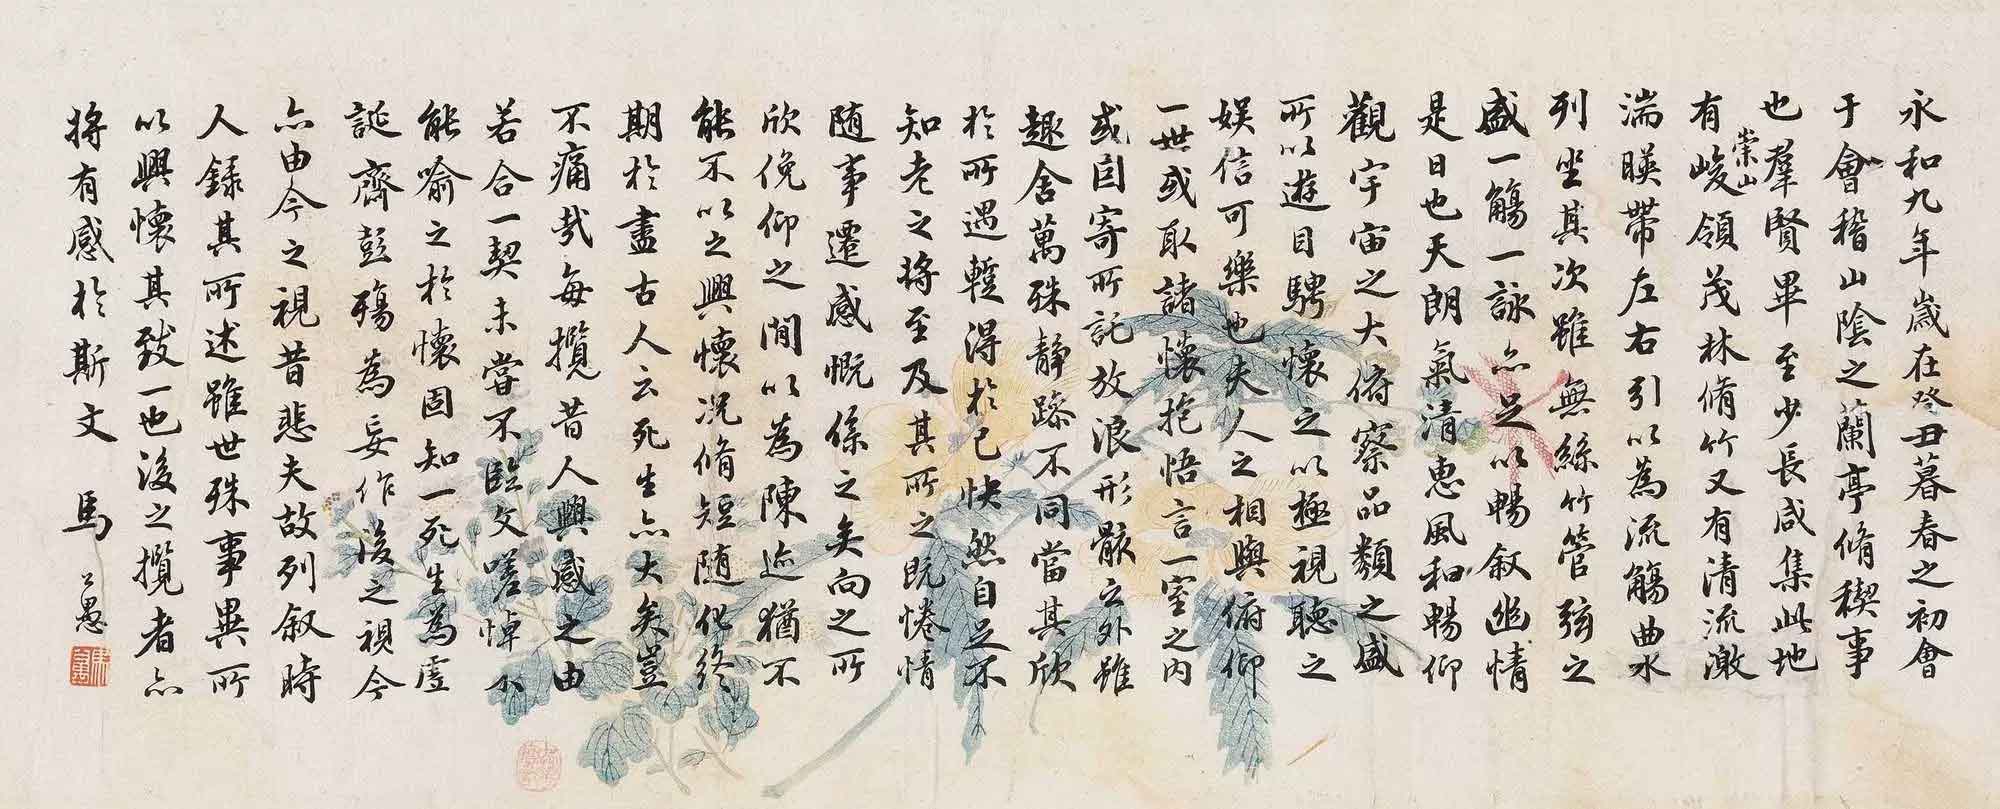 永和九年歲在癸丑暮春之初會
于會稽山陰之蘭亭脩稧事
也羣賢畢至少長咸集此地
有崇山峻領茂林脩竹又有清流激
湍暎帶左右引以為流觴曲水
列坐其次雖無絲竹管弦之
盛一觴一詠亦足以暢叙幽情
是日也天朗氣清惠風和暢仰
觀宇宙之大俯察品類之盛
所以遊目騁懷足以極視聽之
娱信可樂也夫人之相與俯仰
一世或取諸懷抱悟言一室之內
或因寄所託放浪形骸之外雖
趣舍萬殊静躁不同當其欣
於所遇蹔得於己快然自足不
知老之將至及其所之既惓情
隨事遷感慨係之矣向之所
欣俛仰之閒以為陳迹猶不
能不以之興懷况脩短隨化終
期於盡古人云死生亦大矣豈
不痛哉每攬昔人興感之由
若合一契未嘗不臨文嗟悼不
能喻之於懷固知一死生為虛
誕齊彭殤為妄作後之視今
亦由今之視昔悲夫故列叙時
人錄其所述雖世殊事異所
以興懷其致一也後之攬者亦
將有感於斯文 馬公愚